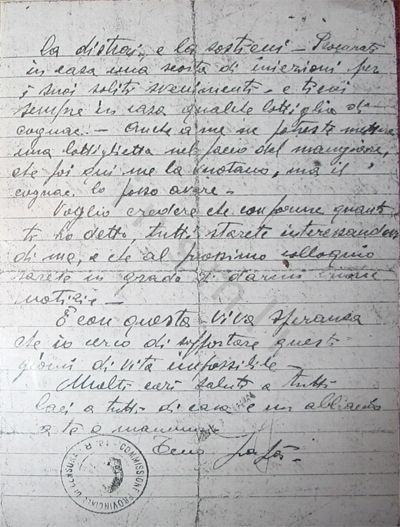 la distrai, e la sostieni - Procurati
in casa una scorta di iniezioni per
i suoi soliti svenimenti - e tieni
sempre in casa qualche bottiglia di
cognac. - Anche a me ne potresti mettere
una bottiglietta nel sacco del mangiare,
che poi qui me la vuotano, ma il
cognac lo posso avere -
Voglio credere che conforme quanto
ti ho detto, tutti starete interessandovi
di me, e che al prossimo colloquio
sarete in grado di darmi buone
notizie -
È con questa viva speranza
che io cerco di sopportare questi
giorni di vita impossibile -
Molti cari saluti a tutti
baci a tutti di casa e un abbraccio
a te e mamma
Tuo
COMMISSIONE PROVINCIALE DI CENSURA